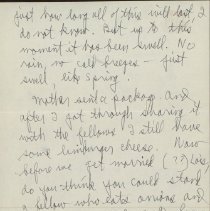 just how long all of this will last I
do not know. But up to this
moment it has been swell. No
rain, no cold breezes - just
swell, like Spring.
Mother sent a package and
after I got through sharing it
with the fellows I still have
some limburger cheese. Now
before we get married (??) Lois
do you think you could stand
a fellow who eats onions and